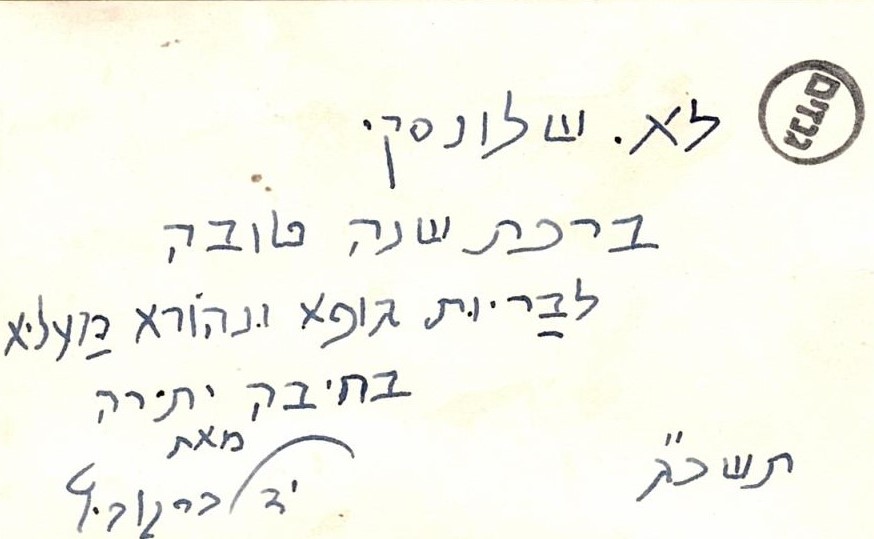 גנזים
לא. שלונסקי
ברכת שנה טובה
לבריות גופא ונהורא מעליא
בחיבה יתירה
מאת
תשכ"ג
י"ד ברקוביץ